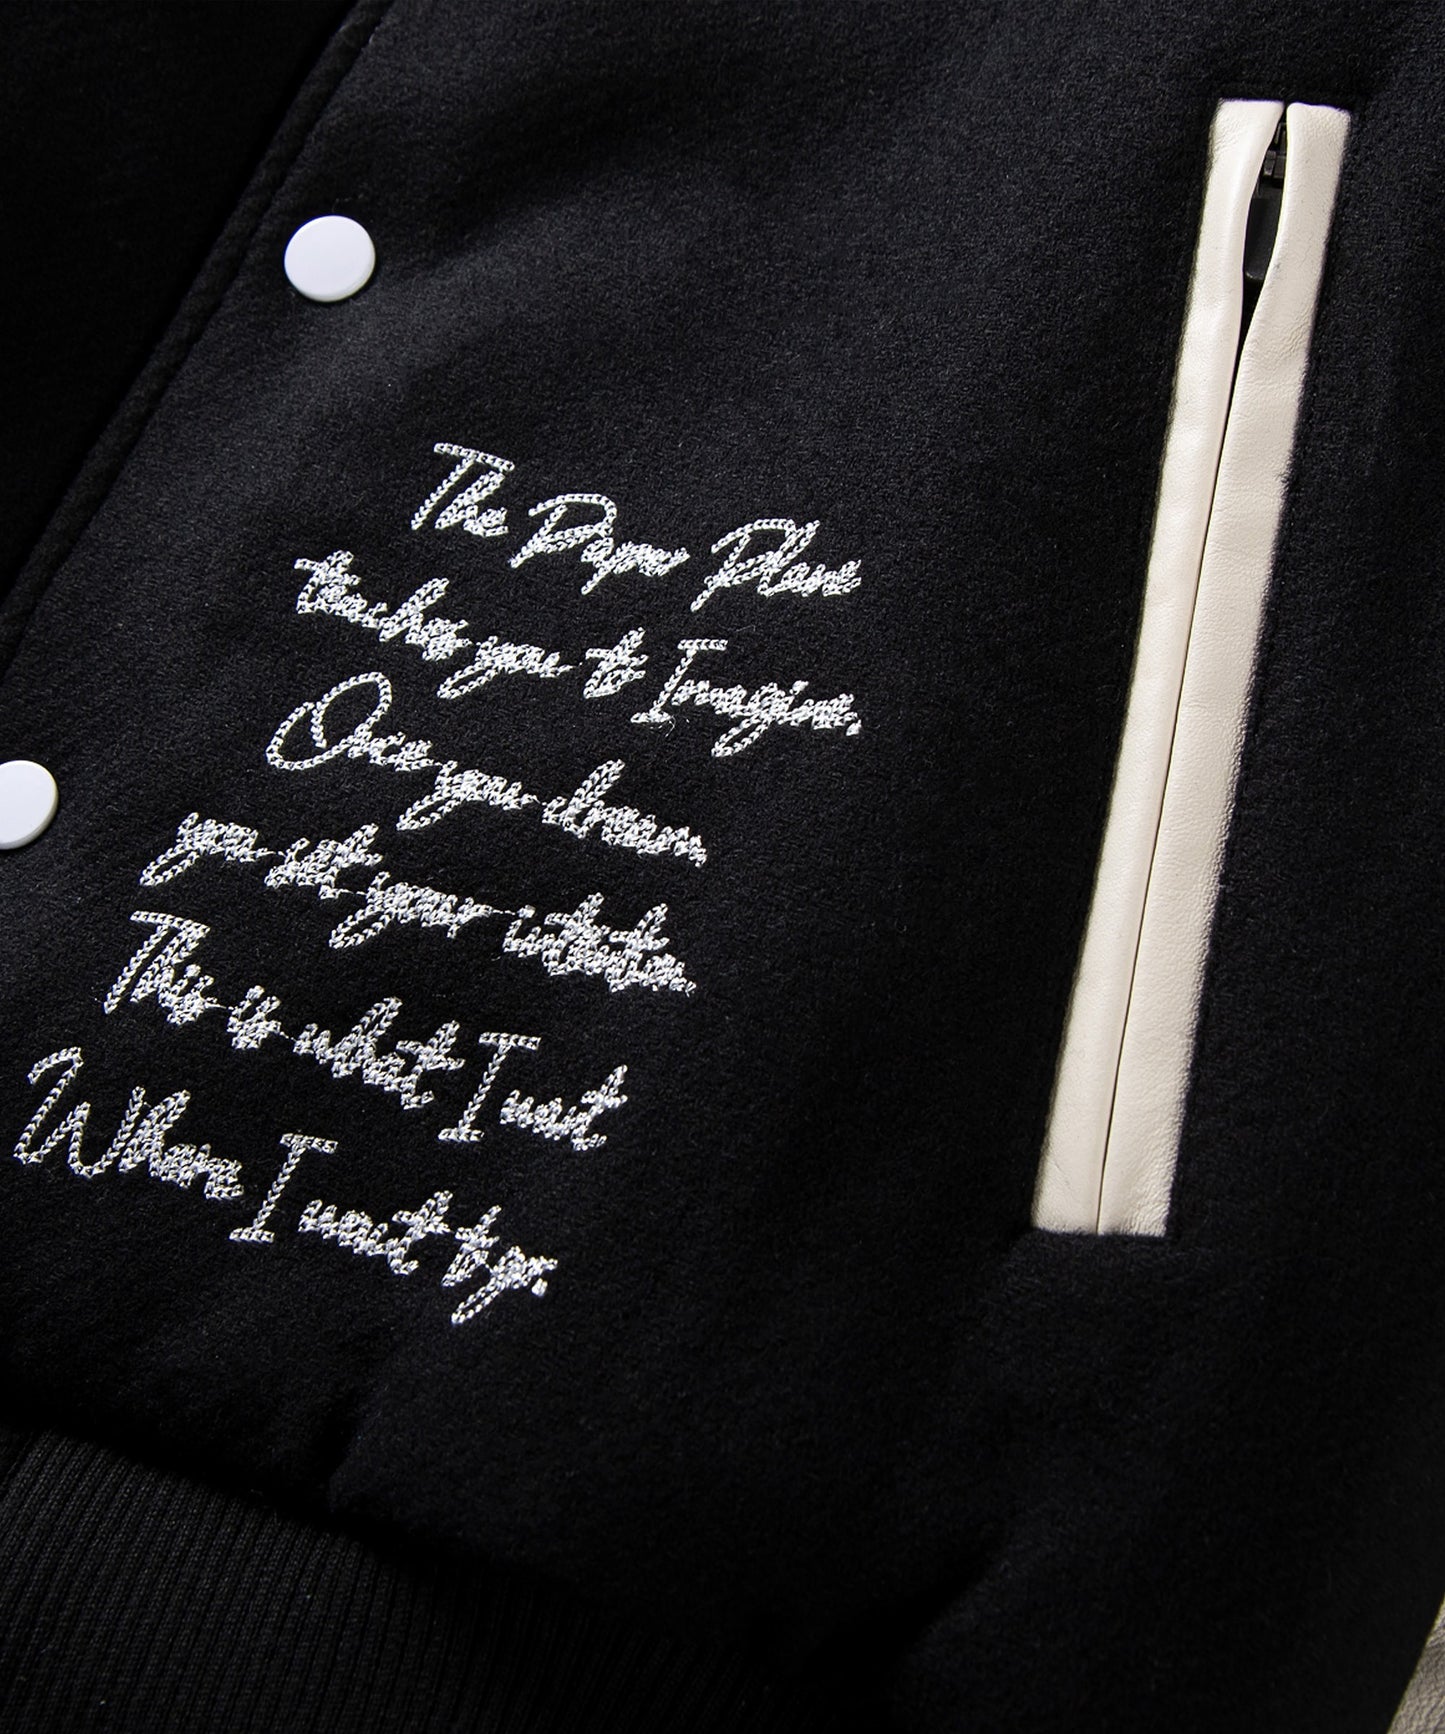 The Paper Plane
teaches you to Imagine,
Once you dream
you set your intention.
This is what I want
Where I want to go.